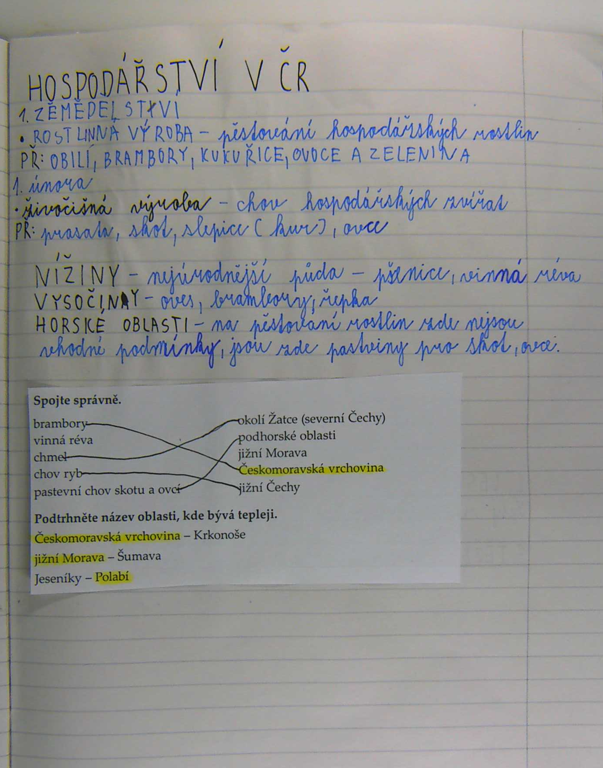 HOSPODÁŘSTVÍ V ČR
1. ZĚMĚDĚLSTVÍ
• ROSTLINNÁ VÝROBA – pěstování hospodářských rostlin
PŘ: OBILÍ, BRAMBORY, KUKUŘICE, OVOCE A ZELENINA
1. února
• živočišná výroba – chov hospodářských zvířat
PŘ: prasata, skot, slepice (kur), ovce
NÍŽINY – nejúrodnější půda – pšenice, vinná réva
VYSOČINY – oves, brambory, řepka
HORSKÉ OBLASTI – na pěstovaní rostlin zde nejsou
vhodné podmínky, jsou zde pastviny pro skot, ovce.
Spojte správně.
brambory okolí Žatce (severní Čechy)
vinná réva podhorské oblasti
chmel jižní Morava
chov ryb Českomoravská vrchovina
pastevní chov skotu a ovcí jižní Čechy
Podtrhněte název oblasti, kde bývá tepleji.
Českomoravská vrchovina – Krkonoše
jižní Morava – Šumava
Jeseníky – Polabí